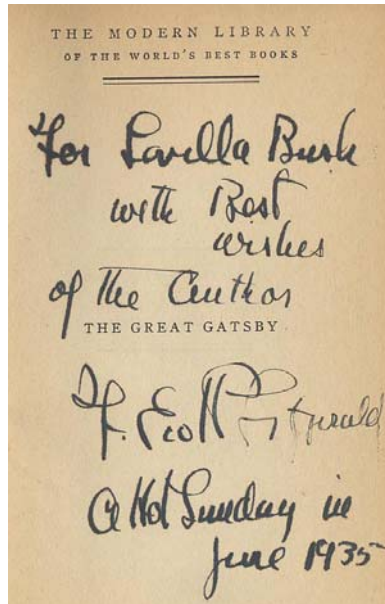 THE MODERN LIBRARY
OF THE WORLD'S BEST BOOKS
For Lovella Bush
with Best
wishes
of the Author
THE GREAT GATSBY
F. Scott Fitzgerald
A Hot Sunday in
June 1935